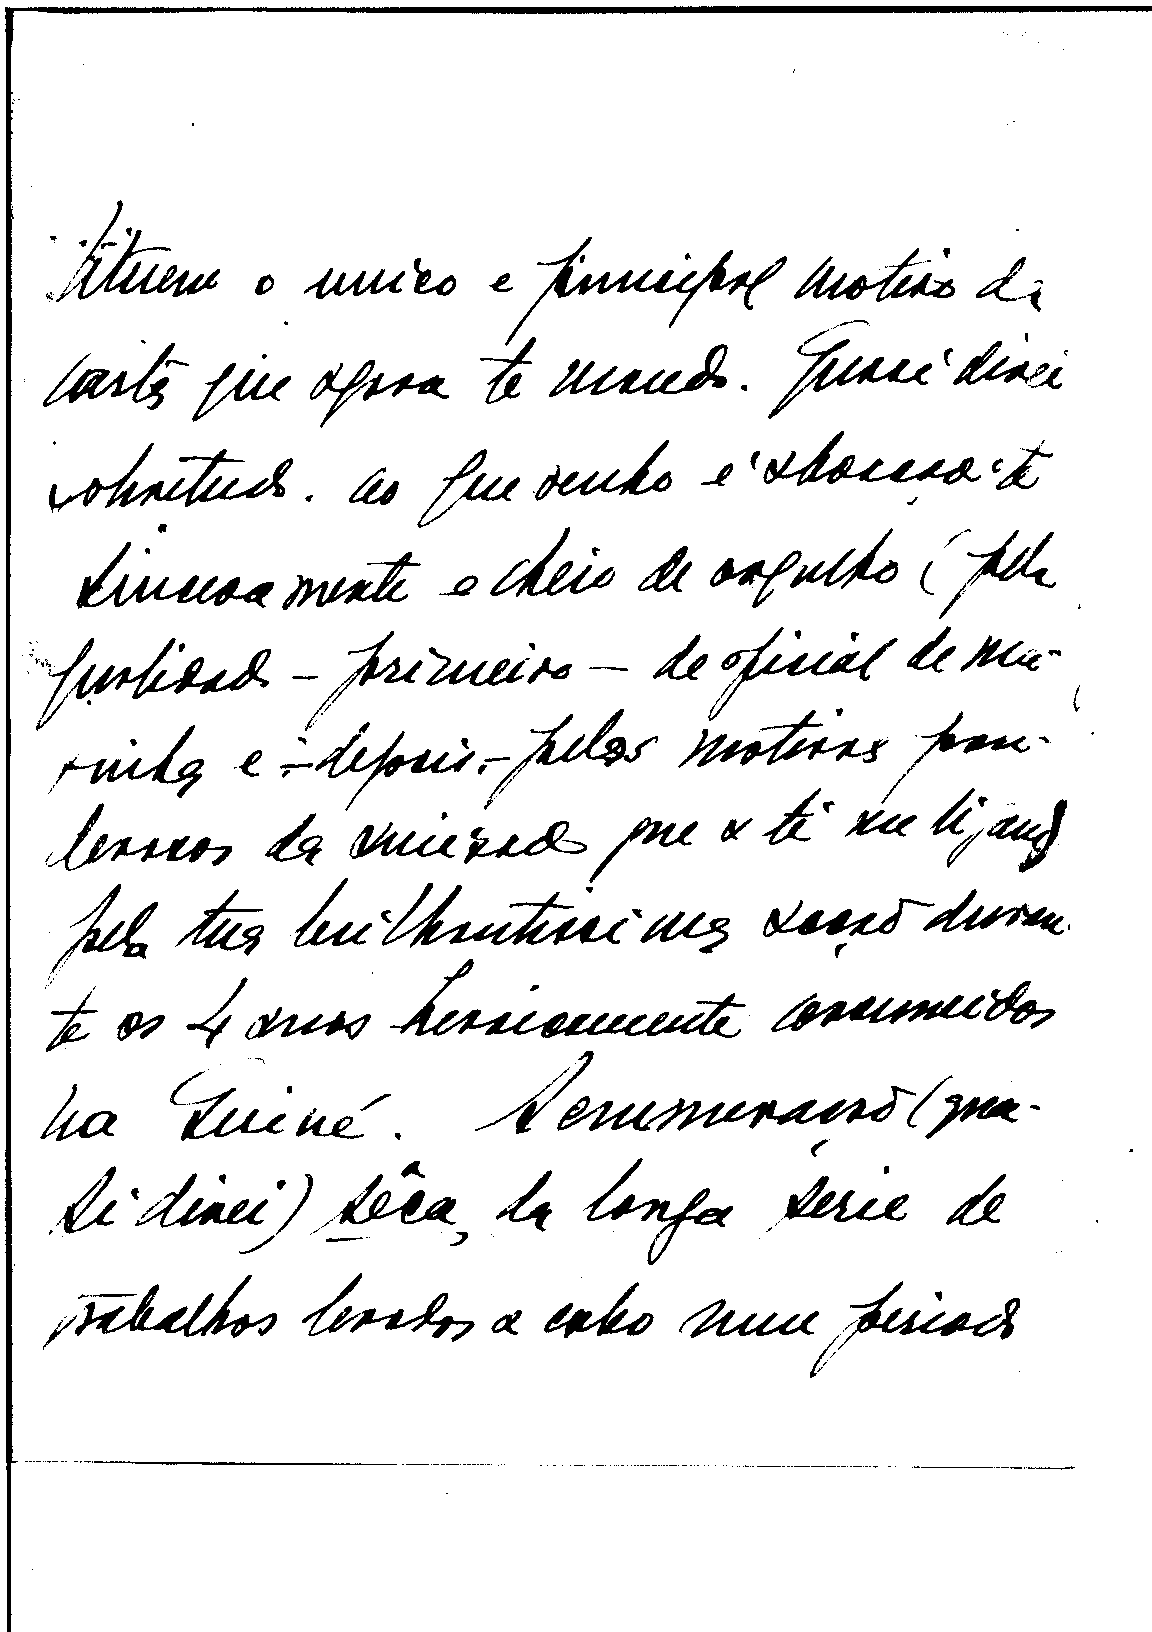 tituem o unico e principal motivo da
carta que agora te mando. Quasi direi
sobretudo. Ao que venho é abraçar-te
sinceramente e cheio de orgulho (pela
qualidade - primeiro - de oficial de ma-
rinha e - depois - pelos motivos pon-
derosos da amizade que a ti me ligam)
pela tua brilhantissima acção duran-
te os 4 anos heroicamente consumidos
na Guiné. A enumeração (qua-
si direi) sêca, da longa serie de
trabalhos levados a cabo num periodo